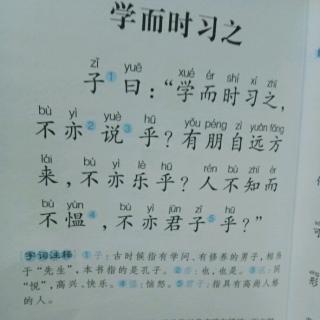 学而时习之
zǐ yuē xué ér shí xí zhī
子①曰：“学而时习之，
bù yì yuè hū yǒu péng zì yuǎn fāng
不亦②说③乎？有朋自远方
lái bù yì lè hū rén bù zhī ér
来，不亦乐乎？人不知而
bù yùn bù yì jūn zǐ hū
不愠④，不亦君子⑤乎？”
字词注释 ①子：古时候指有学问、有修养的男子，相当
于“先生”，本书指的是孔子。②亦：也，也是。③说：同
“悦”，高兴、快乐。④愠：恼怒。⑤君子：指具有高尚人格
的人。